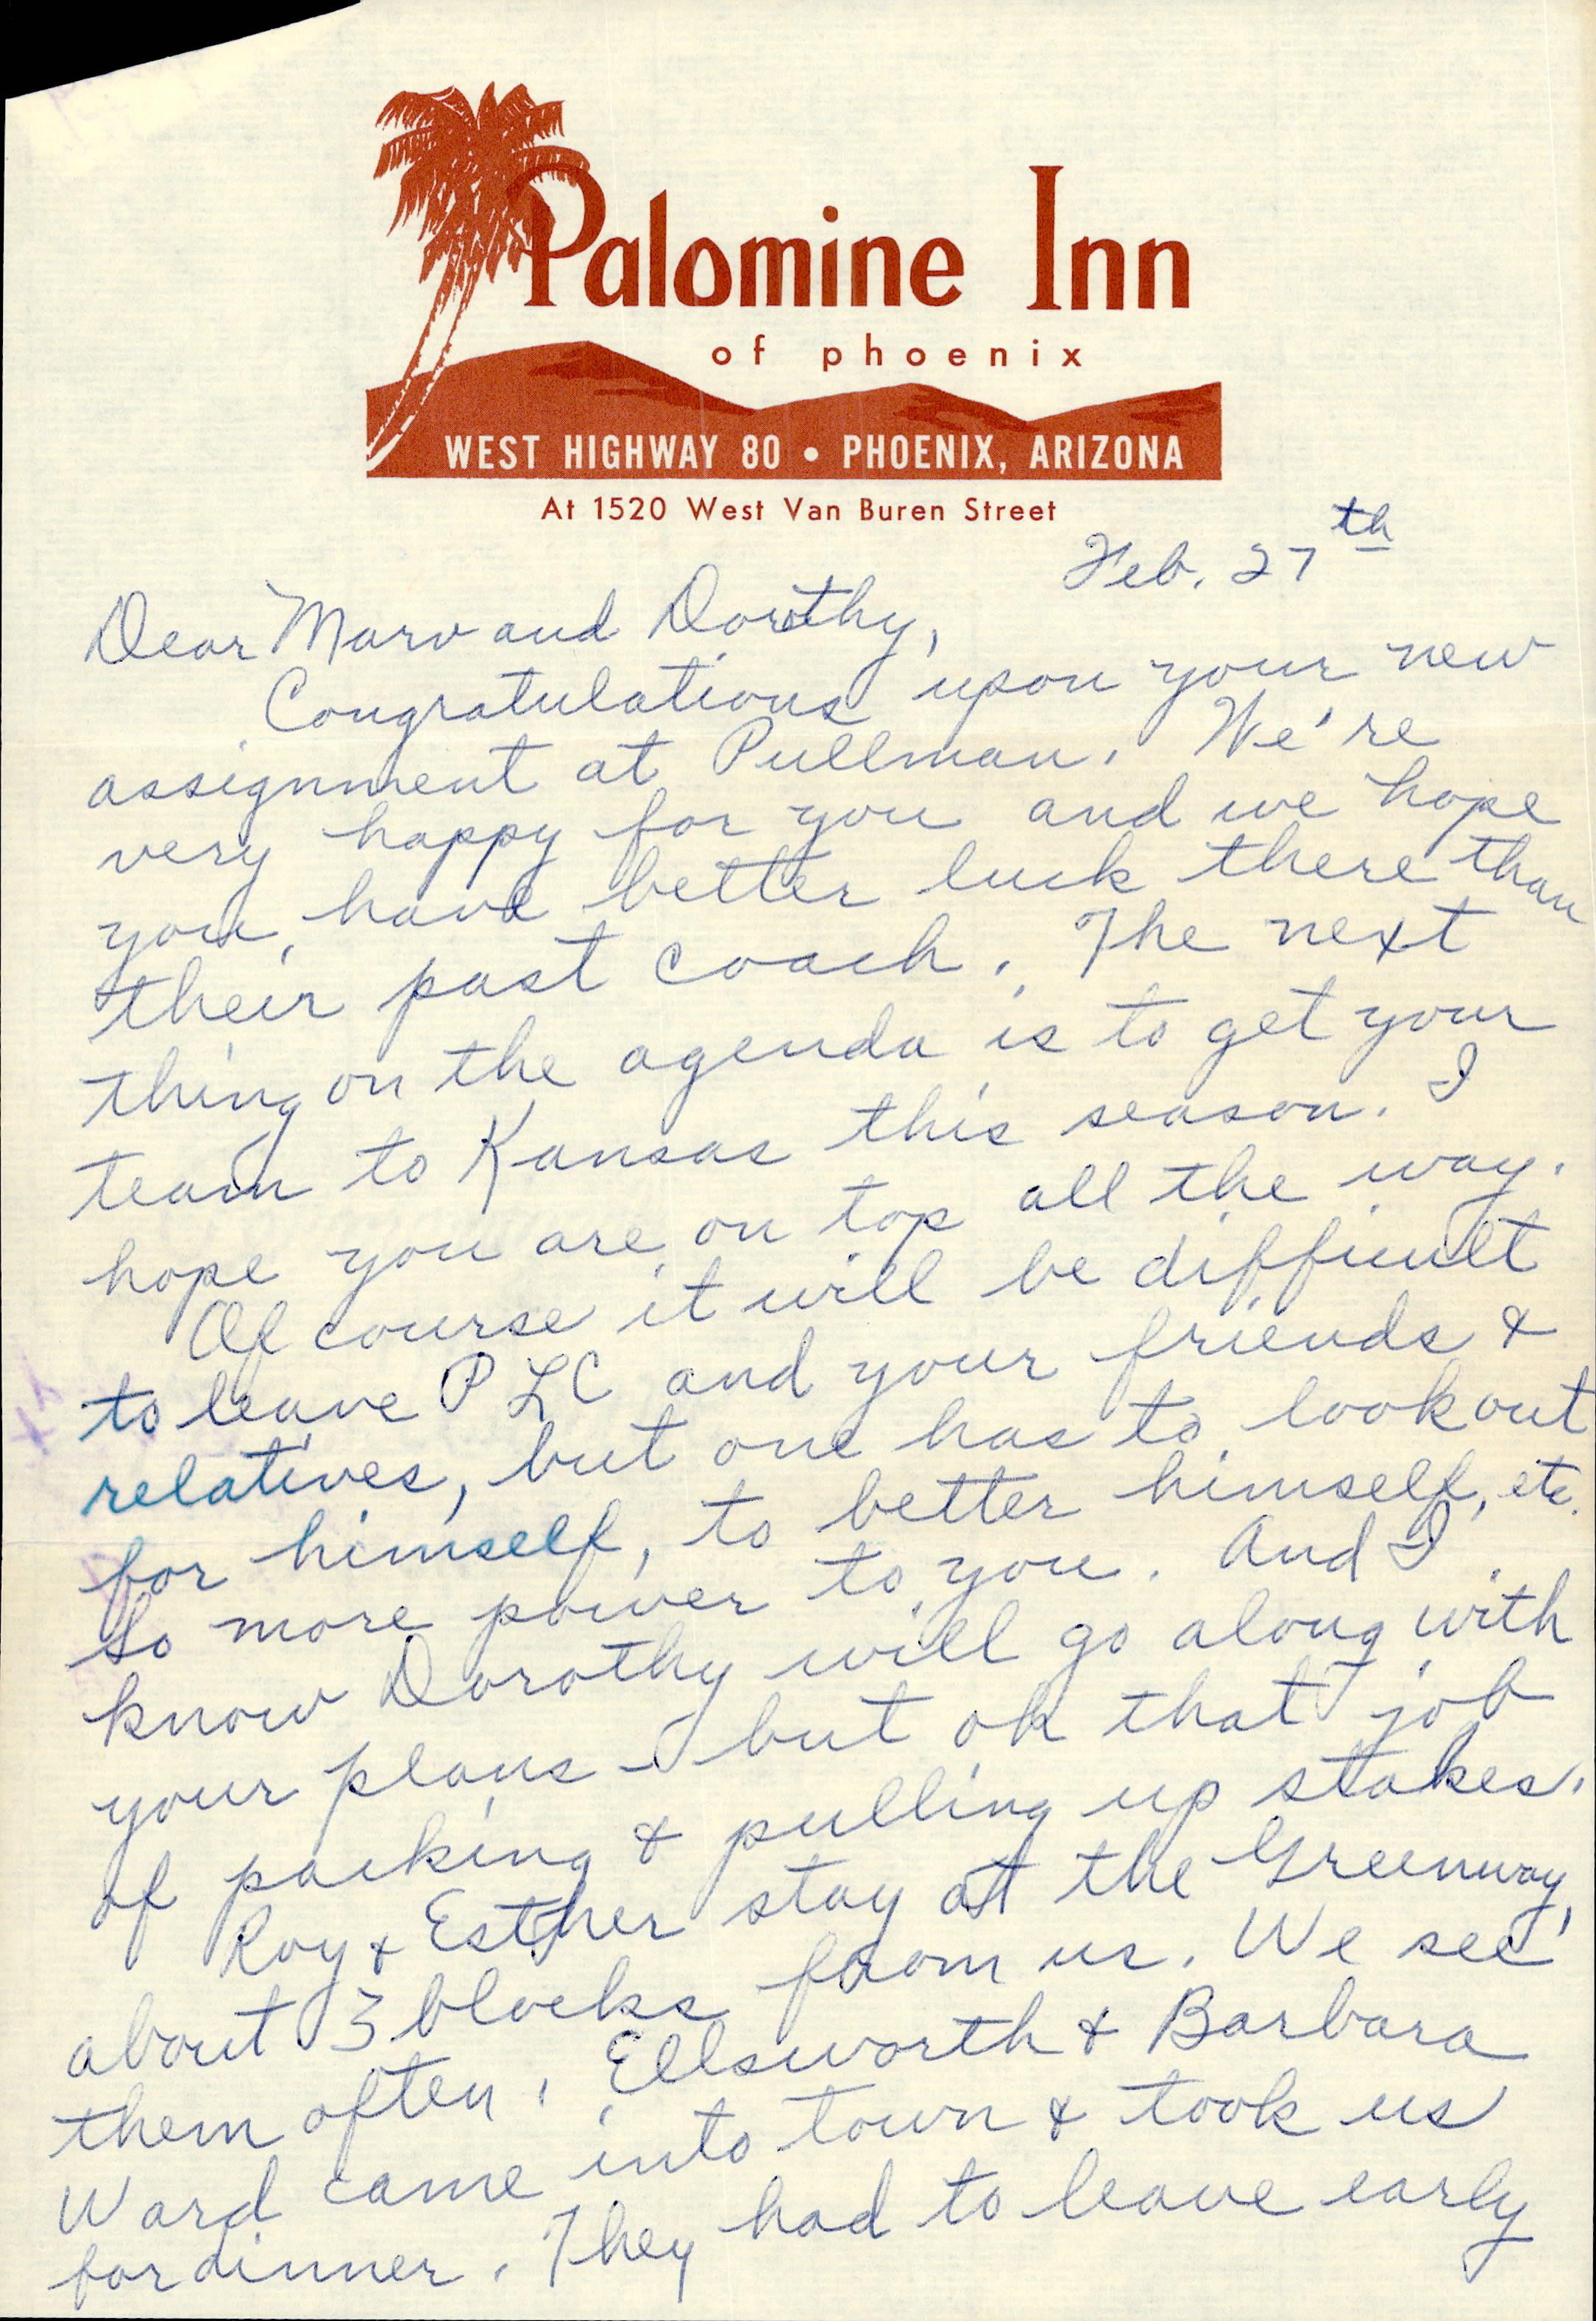 Palomine Inn
of phoenix
WEST HIGHWAY 80 • PHOENIX, ARIZONA
At 1520 West Van Buren Street
Feb. 27th
Dear Marv and Dorothy,
Congratulations upon your new
assignment at Pullman. We're
very happy for you and we hope
you have better luck there than
their past coach. The next
thing on the agenda is to get your
team to Kansas this season. I
hope you are on top all the way.
Of course it will be difficult
to leave PLC and your friends &
relatives, but one has to look out
for himself, to better himself, etc.
So more power to you. And I
know Dorothy will go along with
your plans - but oh that job
of packing & pulling up stakes.
Roy & Esther stay at the Greenway,
about 3 blocks from us. We see
them often. Ellsworth & Barbara
Ward came into town & took us
for dinner. They had to leave early